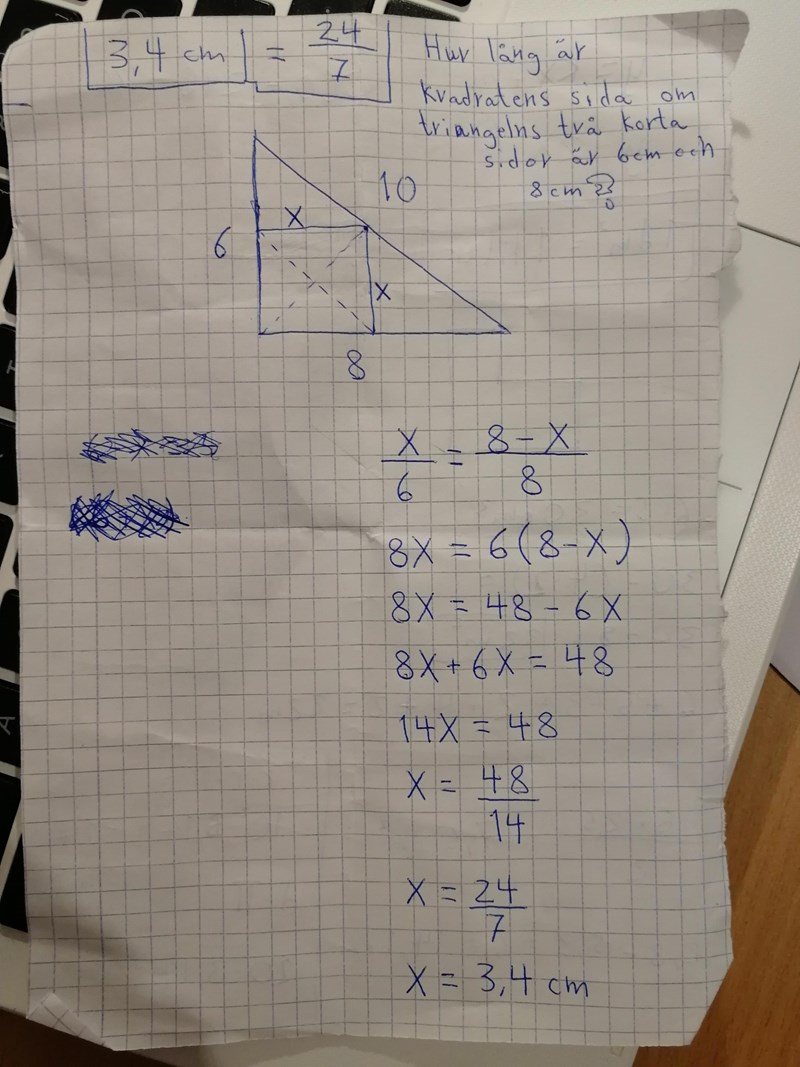 3,4 cm = 24/7
Hur lång är
kvadratens sida om
triangelns två korta
sidor är 6cm och
8cm
10
x
6
x
8
x/6 = 8-x/8
8x = 6(8-x)
8x = 48 - 6x
8x + 6x = 48
14x = 48
x = 48/14
x = 24/7
x = 3,4 cm